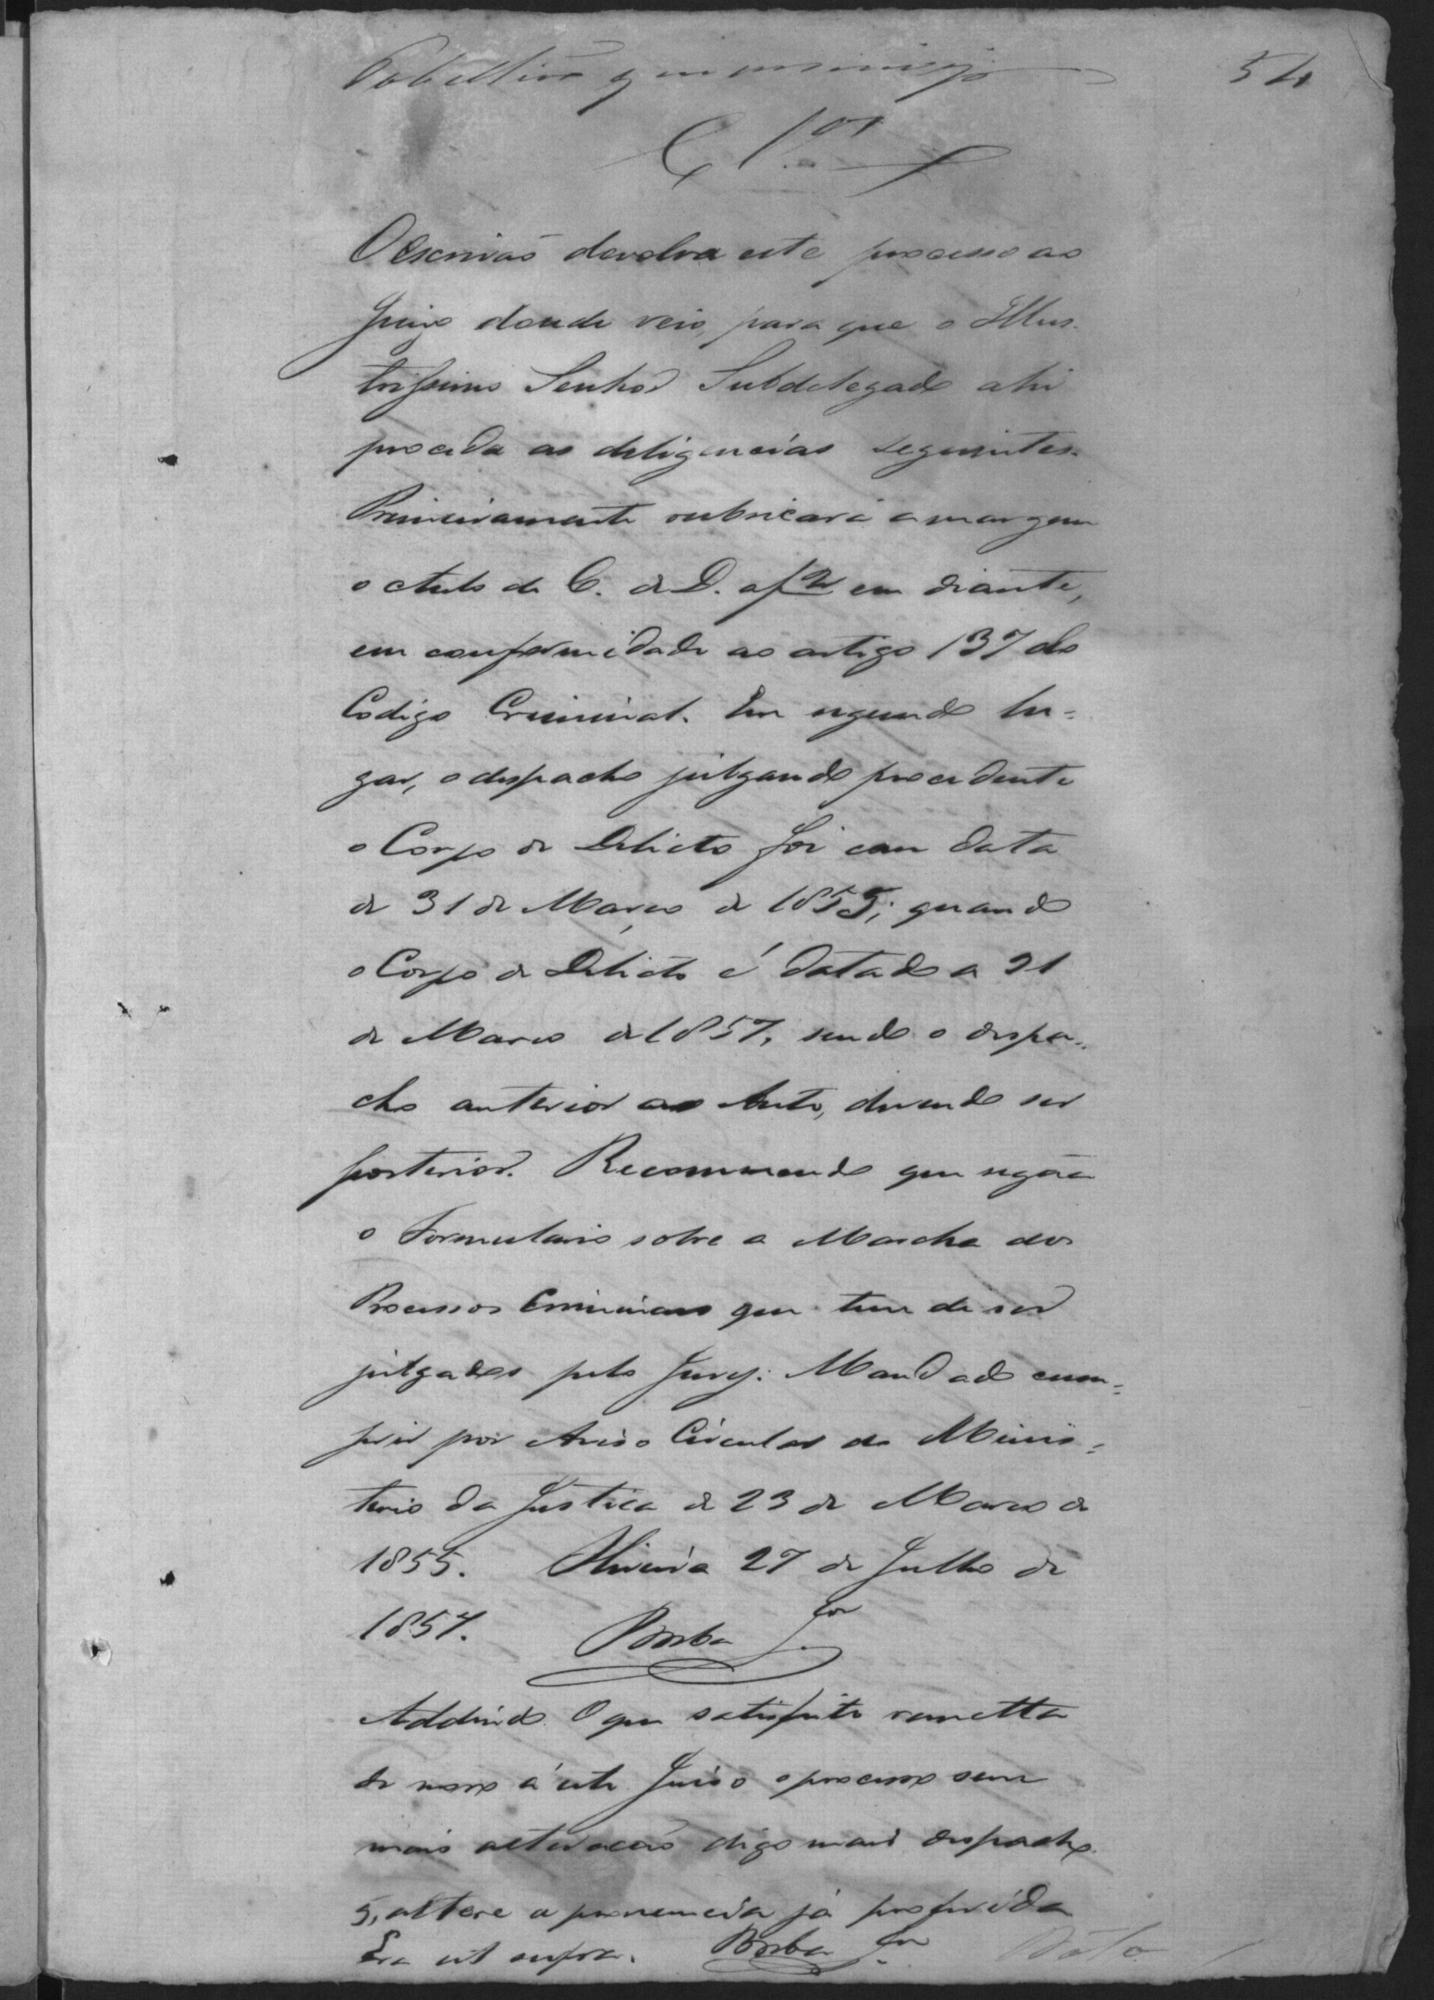 Tabellião q. 54
Cl.os
O Escrivão devolva este processo ao
Juizo donde veio, para que o Illus-
trissimo Senhor Subdelegado ahi
proceda as deligencias seguintes.
Primeiramente rubricará a margem
o Auto de C. de D. a f 2 em diante,
em conformidade ao artigo 137 do
Codigo Criminal. Em segundo lu-
gar, o despacho julgando procedente
o Corpo de Delicto foi com data
de 31 de Março de 1855; quando
o Corpo de Delicto é datado a 21
de Março de 1857, sendo o despa-
cho anterior ao Auto, devendo ser
posterior. Recommendo que sigão
o Formulario sobre a Marcha dos
Processos Criminaes que tem de ser
julgados pelo Jury: Mandado cum-
prir por Aviso Circular do Minis-
terio da Justica de 23 de Março de
1855. Oliveira 27 de Julho de
1857. Borba Jor
Addindo O que satisfeito remetta
de novo á este Juiso o processo sem
mais alteracão digo mais despacho
q, altere a pronuncia já proferida
Era ut supra. Borba Jor Data